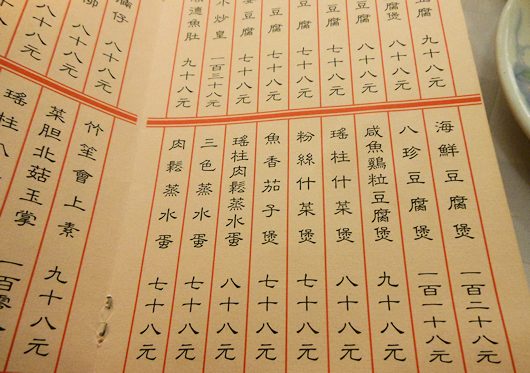 腐 九十八元
腐煲 八十八元
豆腐 八十八元
豆腐 七十八元
豆腐 七十八元
豆腐 七十八元
豆腐 七十八元
小炒皇 一百三十八元
魚肚 九十八元
海鮮豆腐煲 一百二十八元
八珍豆腐煲 一百一十八元
咸魚雞粒豆腐煲 九十八元
瑤柱什菜煲 八十八元
粉絲什菜煲 七十八元
魚香茄子煲 七十八元
瑤柱肉鬆蒸水蛋 八十八元
三色蒸水蛋 七十八元
肉鬆蒸水蛋 七十八元
仔 八十八元
柳 八十八元
八十八元
元
竹笙會上素 九十八元
菜胆北菇玉掌 一百零
瑤柱八